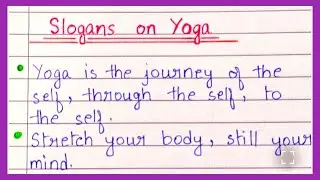 Slogans on Yoga
Yoga is the journey of the
self, through the self, to
the self.
Stretch your body, still your
mind.